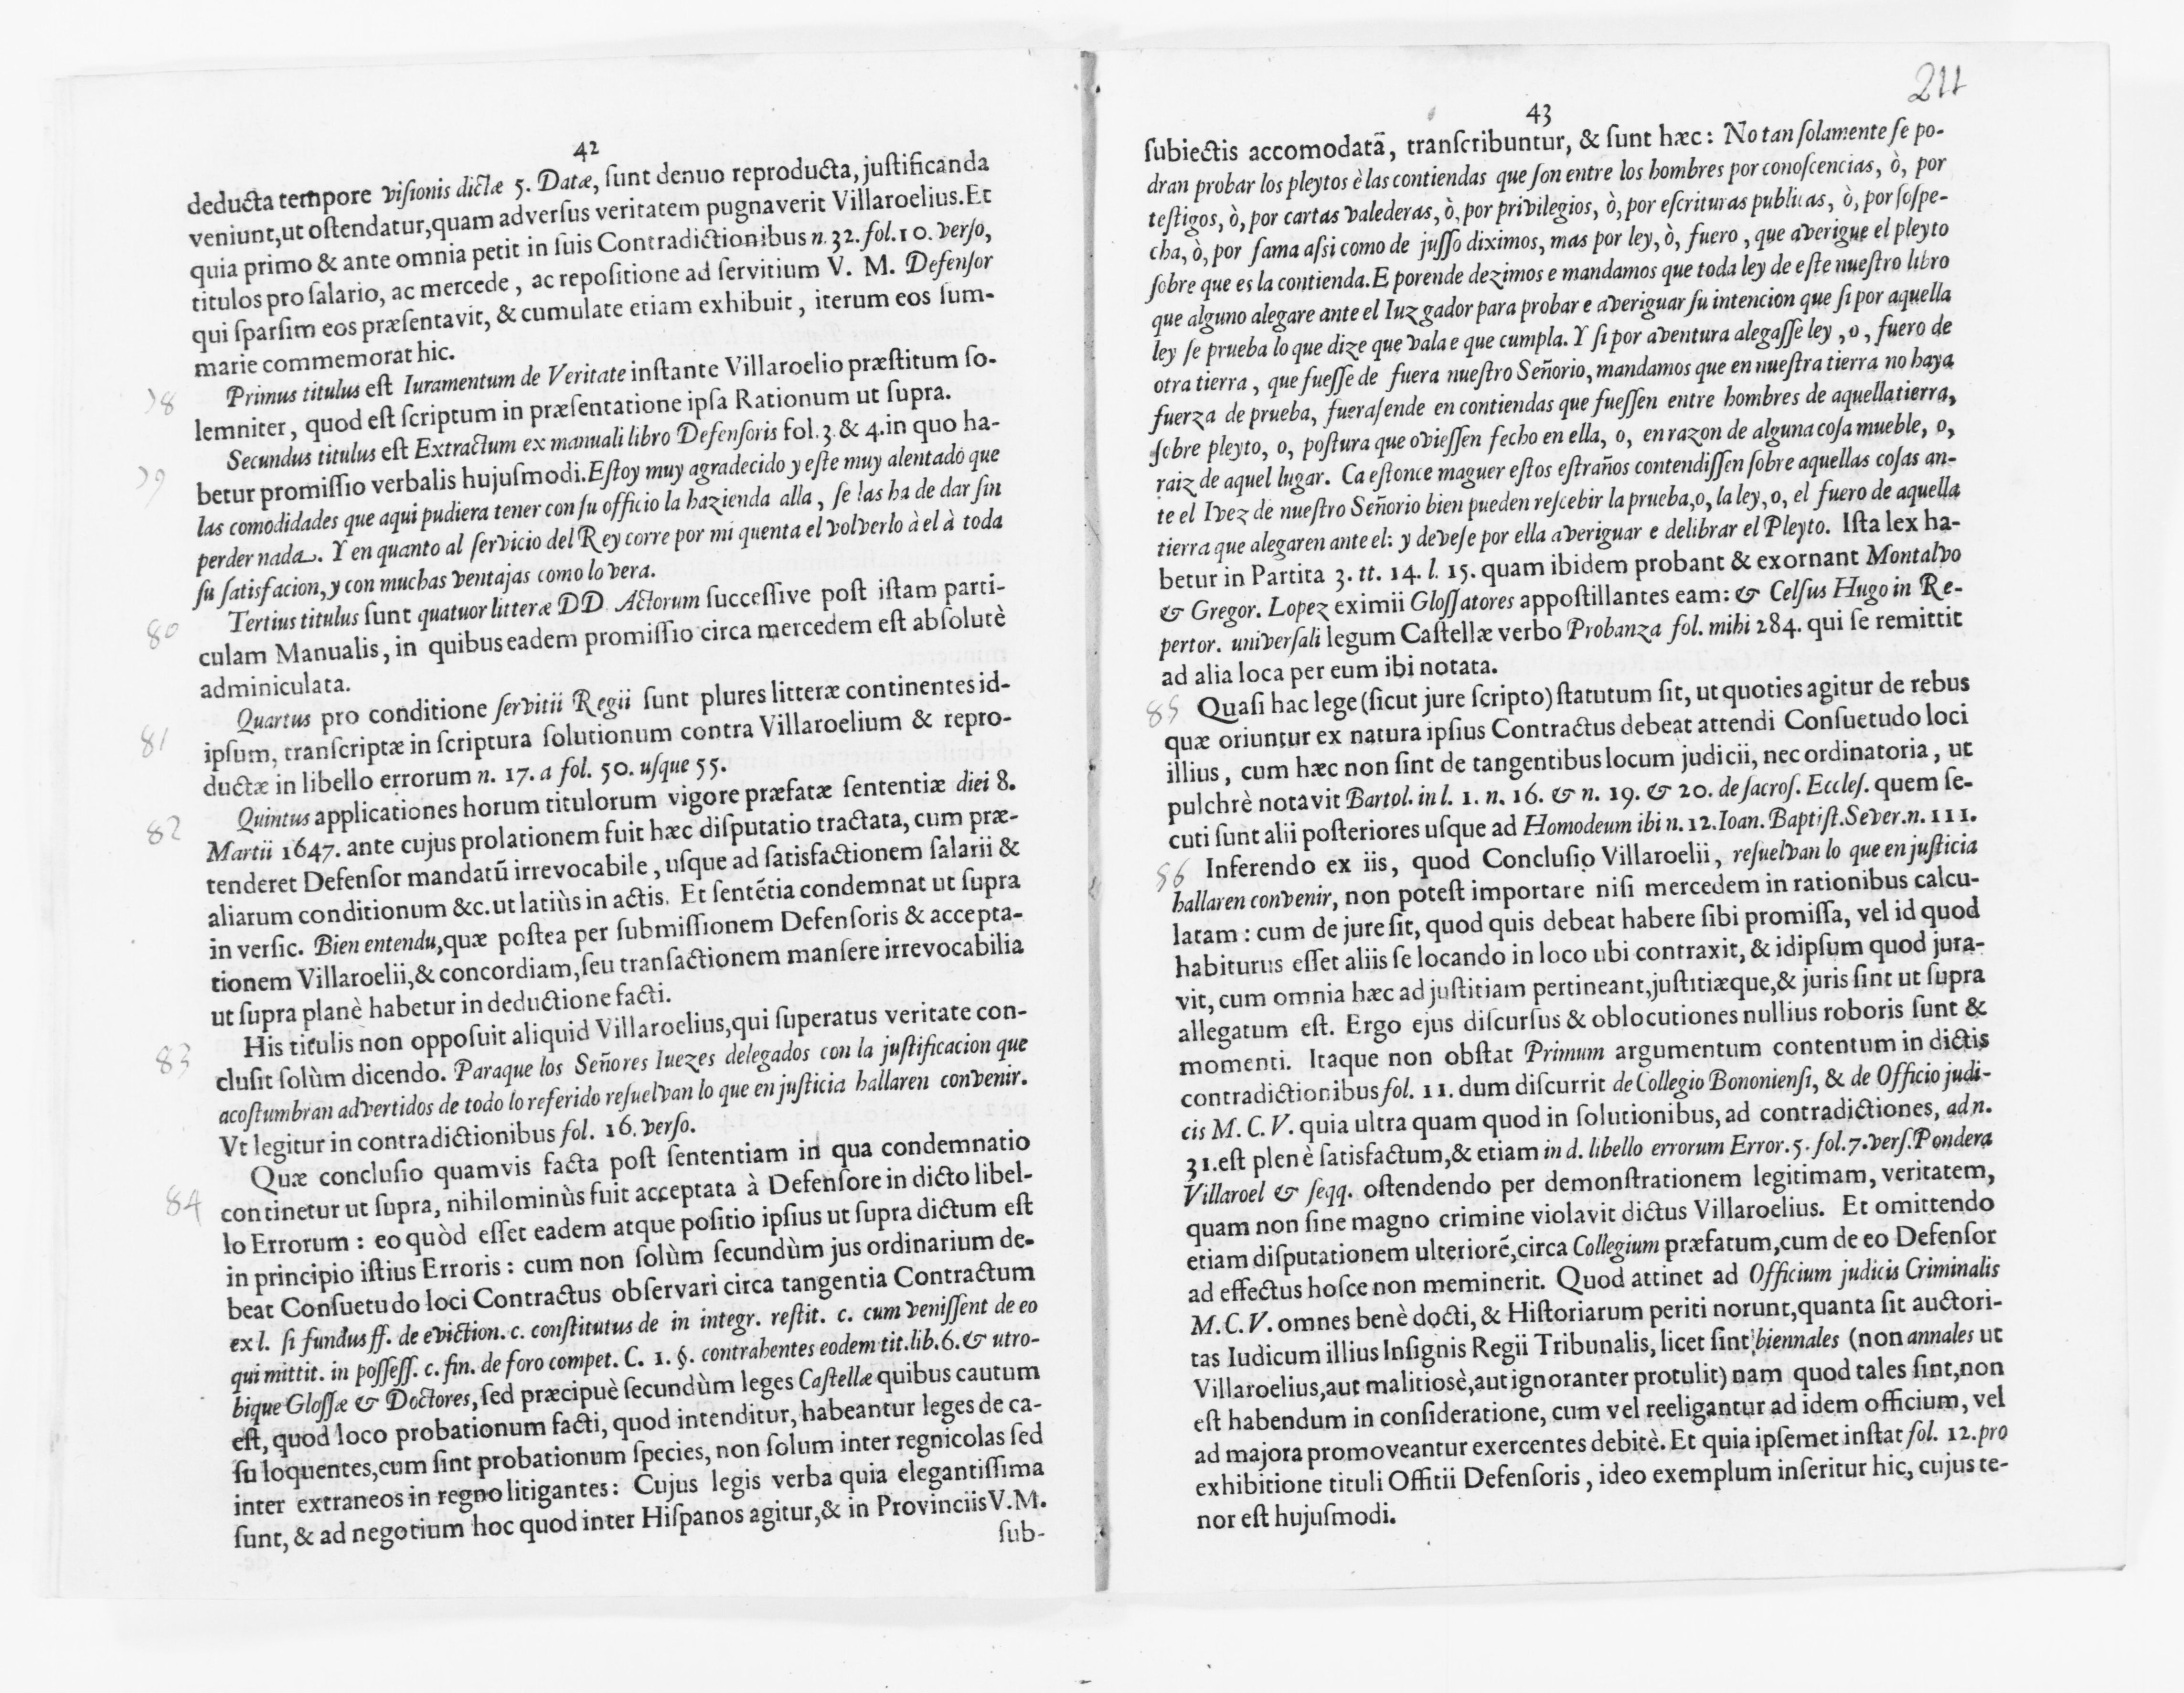 42
deducta tempore visionis dictæ 5. Datæ, sunt denuo reproducta, justificanda
veniunt, ut ostendatur, quam adversus veritatem pugnaverit Villaroelius. Et
quia primo & ante omnia petit in suis Contradictionibus n. 32. fol. 10. verso,
titulos pro salario, ac mercede, ac repositione ad servitium V. M. Defensor
qui sparsim eos præsentavit, & cumulate etiam exhibuit, iterum eos sum-
marie commemorat hic.
78 Primus titulus est Iuramentum de Veritate instante Villaroelio præstitum so-
lemniter, quod est scriptum in præsentatione ipsa Rationum ut supra.
79 Secundus titulus est Extractum ex manuali libro Defensoris fol. 3. & 4. in quo ha-
betur promissio verbalis hujusmodi. Estoy muy agradecido y este muy alentado que
las comodidades que aqui pudiera tener con su officio la hazienda alla, se las ha de dar sin
perder nada. Y en quanto al servicio del Rey corre por mi quenta el volverlo à el à toda
su satisfacion, y con muchas ventajas como lo vera.
80 Tertius titulus sunt quatuor litteræ DD. Actorum successive post istam parti-
culam Manualis, in quibus eadem promissio circa mercedem est absolutè
adminiculata.
81 Quartus pro conditione servitii Regii sunt plures litteræ continentes id-
ipsum, transcriptæ in scriptura solutionum contra Villaroelium & repro-
ductæ in libello errorum n. 17. a fol. 50. usque 55.
82 Quintus applicationes horum titulorum vigore præfatæ sententiæ diei 8.
Martii 1647. ante cujus prolationem fuit hæc disputatio tractata, cum præ-
tenderet Defensor mandatũ irrevocabile, usque ad satisfactionem salarii &
aliarum conditionum &c. ut latiùs in actis. Et sentẽtia condemnat ut supra
in versic. Bien entendu, quæ postea per submissionem Defensoris & accepta-
tionem Villaroelii, & concordiam, seu transactionem mansere irrevocabilia
ut supra planè habetur in deductione facti.
83 His titulis non opposuit aliquid Villaroelius, qui superatus veritate con-
clusit solùm dicendo. Paraque los Señores Iuezes delegados con la justificacion que
acostumbran advertidos de todo lo referido resuelvan lo que en justicia hallaren convenir.
Vt legitur in contradictionibus fol. 16. verso.
84 Quæ conclusio quamvis facta post sententiam in qua condemnatio
continetur ut supra, nihilominùs fuit acceptata à Defensore in dicto libel-
lo Errorum: eo quòd esset eadem atque positio ipsius ut supra dictum est
in principio istius Erroris: cum non solùm secundùm jus ordinarium de-
beat Consuetudo loci Contractus observari circa tangentia Contractum
ex l. si fundus ff. de eviction. c. constitutus de in integr. restit. c. cum venissent de eo
qui mittit. in possess. c. fin. de foro compet. C. 1. §. contrahentes eodem tit. lib. 6. & utro-
bique Glossæ & Doctores, sed præcipuè secundùm leges Castellæ quibus cautum
est, quod loco probationum facti, quod intenditur, habeantur leges de ca-
su loquentes, cum sint probationum species, non solum inter regnicolas sed
inter extraneos in regno litigantes: Cujus legis verba quia elegantissima
sunt, & ad negotium hoc quod inter Hispanos agitur, & in Provinciis V. M.
sub-
211
43
subiectis accomodatã, transcribuntur, & sunt hæc: No tan solamente se po-
dran probar los pleytos è las contiendas que son entre los hombres por conoscencias, ò, por
testigos, ò, por cartas valederas, ò, por privilegios, ò, por escrituras publicas, ò, por sospe-
cha, ò, por fama assi como de jusso diximos, mas por ley, ò, fuero, que averigue el pleyto
sobre que es la contienda. E porende dezimos e mandamos que toda ley de este nuestro libro
que alguno alegare ante el Iuzgador para probar e averiguar su intencion que si por aquella
ley se prueba lo que dize que vala e que cumpla. Y si por aventura alegasse ley, o, fuero de
otra tierra, que fuesse de fuera nuestro Señorio, mandamos que en nuestra tierra no haya
fuerza de prueba, fuerasende en contiendas que fuessen entre hombres de aquella tierra,
sobre pleyto, o, postura que oviessen fecho en ella, o, en razon de alguna cosa mueble, o,
raiz de aquel lugar. Ca estonce maguer estos estraños contendissen sobre aquellas cosas an-
te el Ivez de nuestro Señorio bien pueden rescebir la prueba, o, la ley, o, el fuero de aquella
tierra que alegaren ante el: y devese por ella averiguar e delibrar el Pleyto. Ista lex ha-
betur in Partita 3. tt. 14. l. 15. quam ibidem probant & exornant Montalvo
& Gregor. Lopez eximii Glossatores appostillantes eam: & Celsus Hugo in Re-
pertor. universali legum Castellæ verbo Probanza fol. mihi 284. qui se remittit
ad alia loca per eum ibi notata.
85 Quasi hac lege (sicut jure scripto) statutum sit, ut quoties agitur de rebus
quæ oriuntur ex natura ipsius Contractus debeat attendi Consuetudo loci
illius, cum hæc non sint de tangentibus locum judicii, nec ordinatoria, ut
pulchrè notavit Bartol. in l. 1. n. 16. & n. 19. & 20. de sacros. Eccles. quem se-
cuti sunt alii posteriores usque ad Homodeum ibi n. 12. Ioan. Baptist. Sever. n. 111.
86 Inferendo ex iis, quod Conclusio Villaroelii, resuelvan lo que en justicia
hallaren convenir, non potest importare nisi mercedem in rationibus calcu-
latam: cum de jure sit, quod quis debeat habere sibi promissa, vel id quod
habiturus esset aliis se locando in loco ubi contraxit, & idipsum quod jura-
vit, cum omnia hæc ad justitiam pertineant, justitiæque, & juris sint ut supra
allegatum est. Ergo ejus discursus & oblocutiones nullius roboris sunt &
momenti. Itaque non obstat Primum argumentum contentum in dictis
contradictionibus fol. 11. dum discurrit de Collegio Bononiensi, & de Officio judi-
cis M. C. V. quia ultra quam quod in solutionibus, ad contradictiones, ad n.
31. est plenè satisfactum, & etiam in d. libello errorum Error. 5. fol. 7. vers. Pondera
Villaroel & seqq. ostendendo per demonstrationem legitimam, veritatem,
quam non sine magno crimine violavit dictus Villaroelius. Et omittendo
etiam disputationem ulteriorẽ, circa Collegium præfatum, cum de eo Defensor
ad effectus hosce non meminerit. Quod attinet ad Officium judicis Criminalis
M. C. V. omnes benè docti, & Historiarum periti norunt, quanta sit auctori-
tas Iudicum illius Insignis Regii Tribunalis, licet sint biennales (non annales ut
Villaroelius, aut malitiosè, aut ignoranter protulit) nam quod tales sint, non
est habendum in consideratione, cum vel reeligantur ad idem officium, vel
ad majora promoveantur exercentes debitè. Et quia ipsemet instat fol. 12. pro
exhibitione tituli Offitii Defensoris, ideo exemplum inseritur hic, cujus te-
nor est hujusmodi.